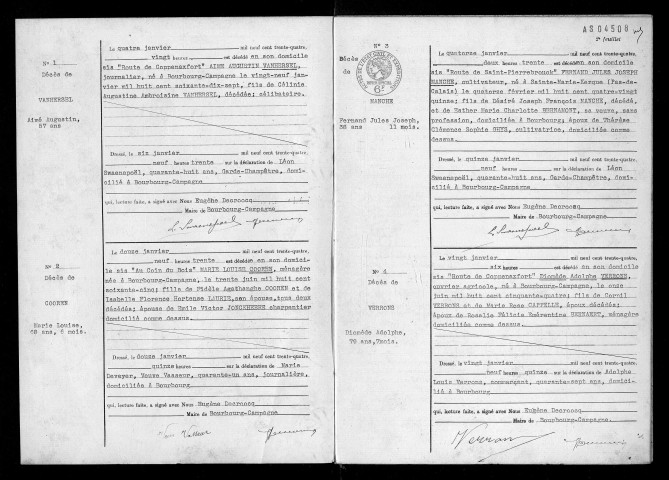 N° 1
Décès de
VANHERSEL
Aimé Augustin,
57 ans
Le quatre janvier mil neuf cent trente-quatre,
vingt heures est décédé en son domicile
sis "Route de Coppenaxfort" AIMÉ AUGUSTIN VANHERSEL,
journalier, né à Bourbourg-Campagne le vingt-neuf jan-
vier mil huit cent soixante-dix-sept, fils de Célinie
Augustine Ambroisine VANHERSEL, décédée; célibataire.
Dressé, le six janvier mil neuf cent trente-quatre,
neuf heures trente sur la déclaration de Léon
Swaenepoël, quarante-huit ans, Garde-Champêtre, domi-
cilié à Bourbourg-Campagne
qui, lecture faite, a signé avec Nous Eugène Decroocq
Maire de Bourbourg-Campagne
L. Swaenepoel
N° 2
Décès de
COONEN
Marie Louise,
68 ans, 6 mois.
Le douze janvier mil neuf cent trente-quatre,
neuf heures trente est décédée en son domici-
le sis "Au Coin du Bois" MARIE LOUISE COONEN, ménagère
née à Bourbourg-Campagne, le trente juin mil huit cent
soixante-cinq; fille de Fidèle Agathange COONEN et de
Isabelle Florence Hortense LAURIE, son épouse, tous deux
décédés; épouse de Emile Victor JONCKHEERE charpentier
domicilié comme dessus.
Dressé, le douze janvier mil neuf cent trente-quatre,
quinze heures sur la déclaration de Marie
Devayer, Veuve Vasseur, quarante-un ans, journalière,
domiciliée à Bourbourg
qui, lecture faite, a signé avec Nous Eugène Decroocq
Maire de Bourbourg-Campagne
AS04508
2e feuillet
N° 3
Décès
de
MANCHE
Fernand Jules Joseph,
38 ans 11 mois.
Le quatorze janvier mil neuf cent trente-quatre,
deux heures trente est décédé en son domicile
sis "Route de Saint-Pierrebrouck" FERNAND JULES JOSEPH
MANCHE, cultivateur, né à Sainte-Marie-Kerque (Pas-de-
Calais) le quatorze février mil huit cent quatre-vingt
quinze; fils de Désiré Joseph François MANCHE, décédé,
et de Esther Marie Charlotte BERNAMONT, sa veuve, sans
profession, domiciliée à Bourbourg; époux de Thérèse
Clémence Sophie GHYS, cultivatrice, domiciliée comme
dessus.
Dressé, le quinze janvier mil neuf cent trente-quatre,
neuf heures trente sur la déclaration de Léon
Swaenepoël, quarante-huit ans, Garde-Champêtre, domi-
cilié à Bourbourg-Campagne
qui, lecture faite, a signé avec Nous Eugène Decroocq
Maire de Bourbourg-Campagne
L. Swaenepoel
N° 4
Décès de
VERRONS
Diomède Adolphe,
79 ans, 7mois.
Le vingt janvier mil neuf cent trente-quatre,
six heures est décédé en son domicile
sis "Route de Coppenaxfort" Diomède Adolphe VERRONS,
ouvrier agricole, né à Bourbourg-Campagne, le onze
juin mil huit cent cinquante-quatre; fils de
VERRONS et de Marie Rose CAPPELLE, époux décédés;
époux de Rosalie Félicie Exérentine BEHAEGT, ménagère
domiciliée comme dessus.
Dressé, le vingt janvier mil neuf cent trente-quatre,
neuf heures quinze sur la déclaration de Adolphe
Louis Verrons, commerçant, quarante-sept ans, domici-
lié à Bourbourg
qui, lecture faite, a signé avec Nous Eugène Decroocq
Maire de Bourbourg-Campagne.
Verrons